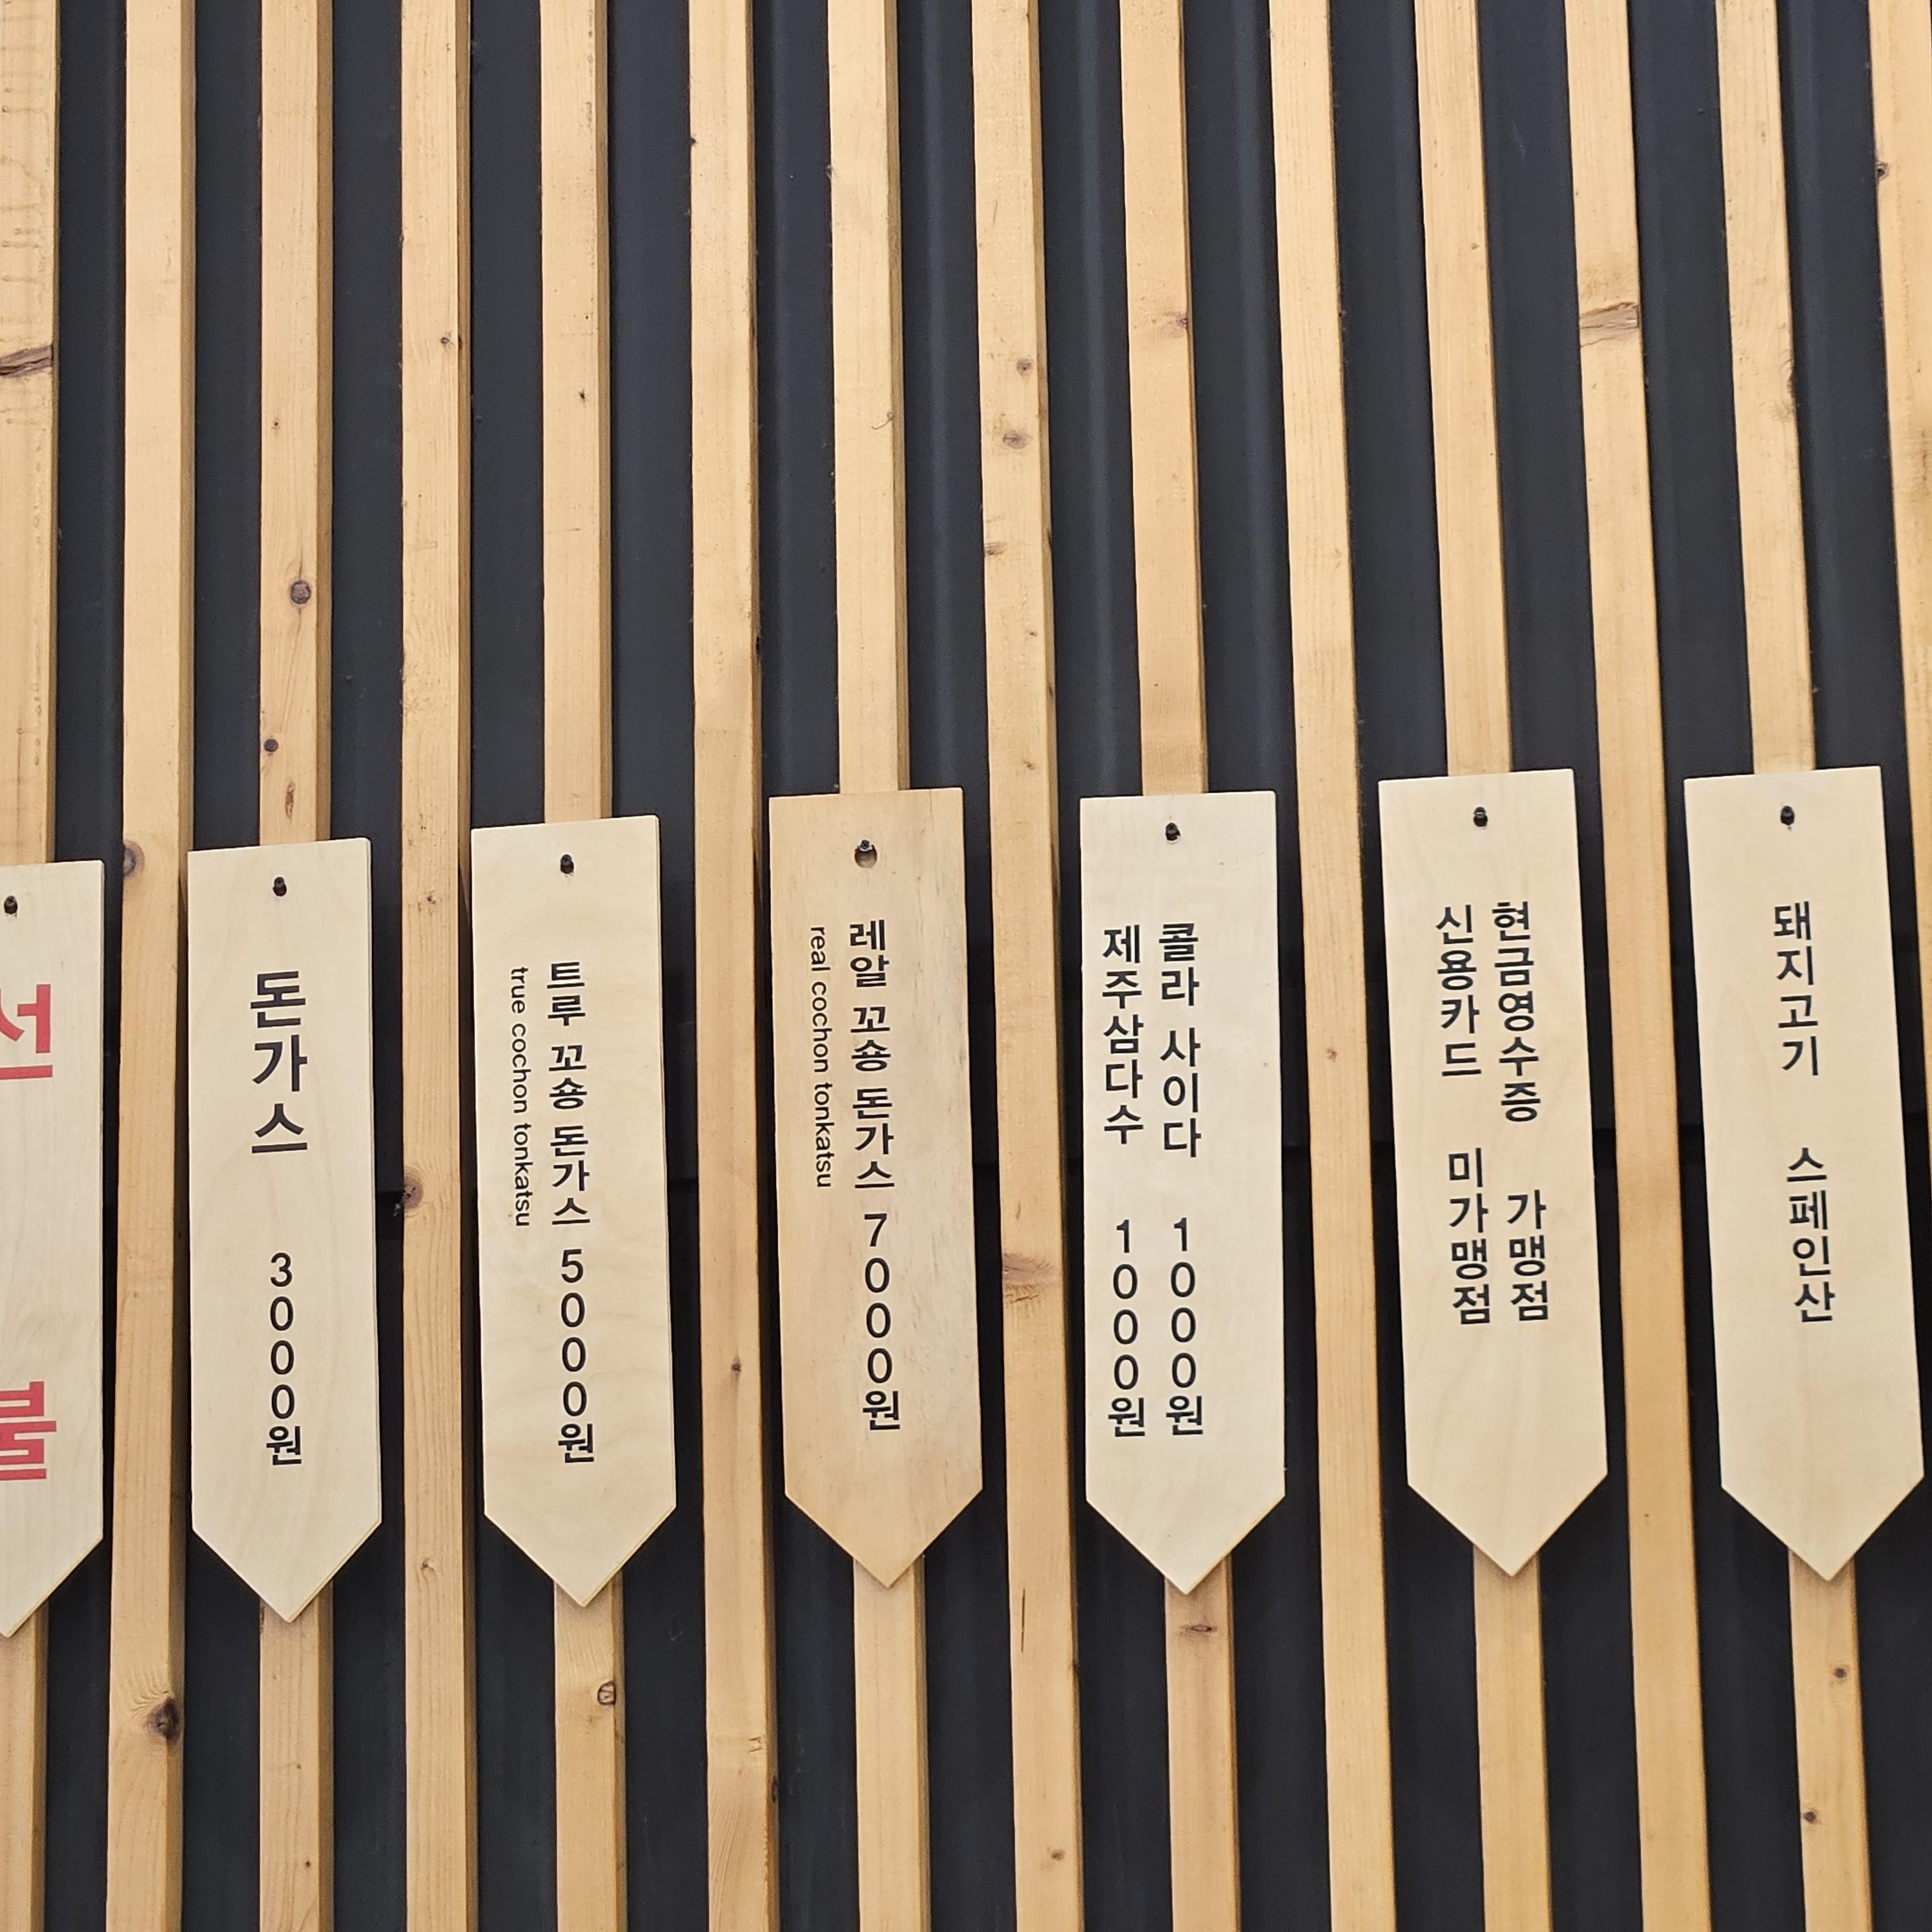 선
불
돈가스 3000원
트루 꼬숑 돈가스 5000원
true cochon tonkatsu
레알 꼬숑 돈가스 7000원
real cochon tonkatsu
콜라 사이다 1000원
제주삼다수 1000원
현금영수증 가맹점
신용카드 미가맹점
돼지고기 스페인산